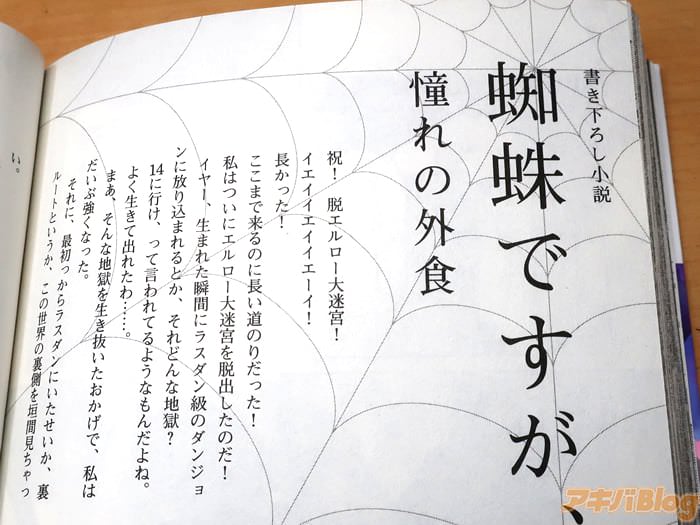 書き下ろし小説
蜘蛛ですが、
憧れの外食
祝！　脱エルロー大迷宮！
イエイイエイイエーイ！
長かった！
ここまで来るのに長い道のりだった！
私はついにエルロー大迷宮を脱出したのだ！
イヤー、生まれた瞬間にラスダン級のダンジョ
ンに放り込まれるとか、それどんな地獄？
14に行け、って言われてるようなもんだよね。
よく生きて出れたわ……。
まあ、そんな地獄を生き抜いたおかげで、私は
だいぶ強くなった。
それに、最初っからラスダンにいたせいか、裏
ルートというか、この世界の裏側を垣間見ちゃっ
い。
アキバBlog